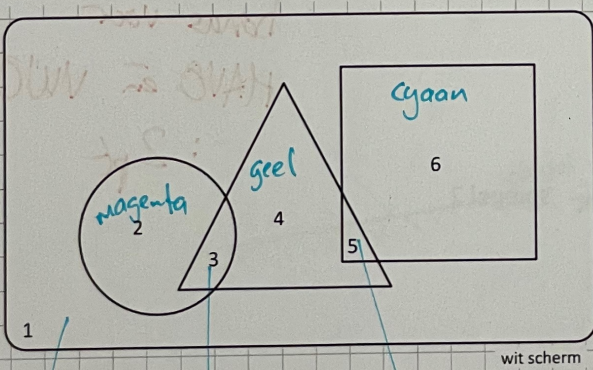 cyaan
geel
6
magenta
2
4
3
5
1
wit scherm